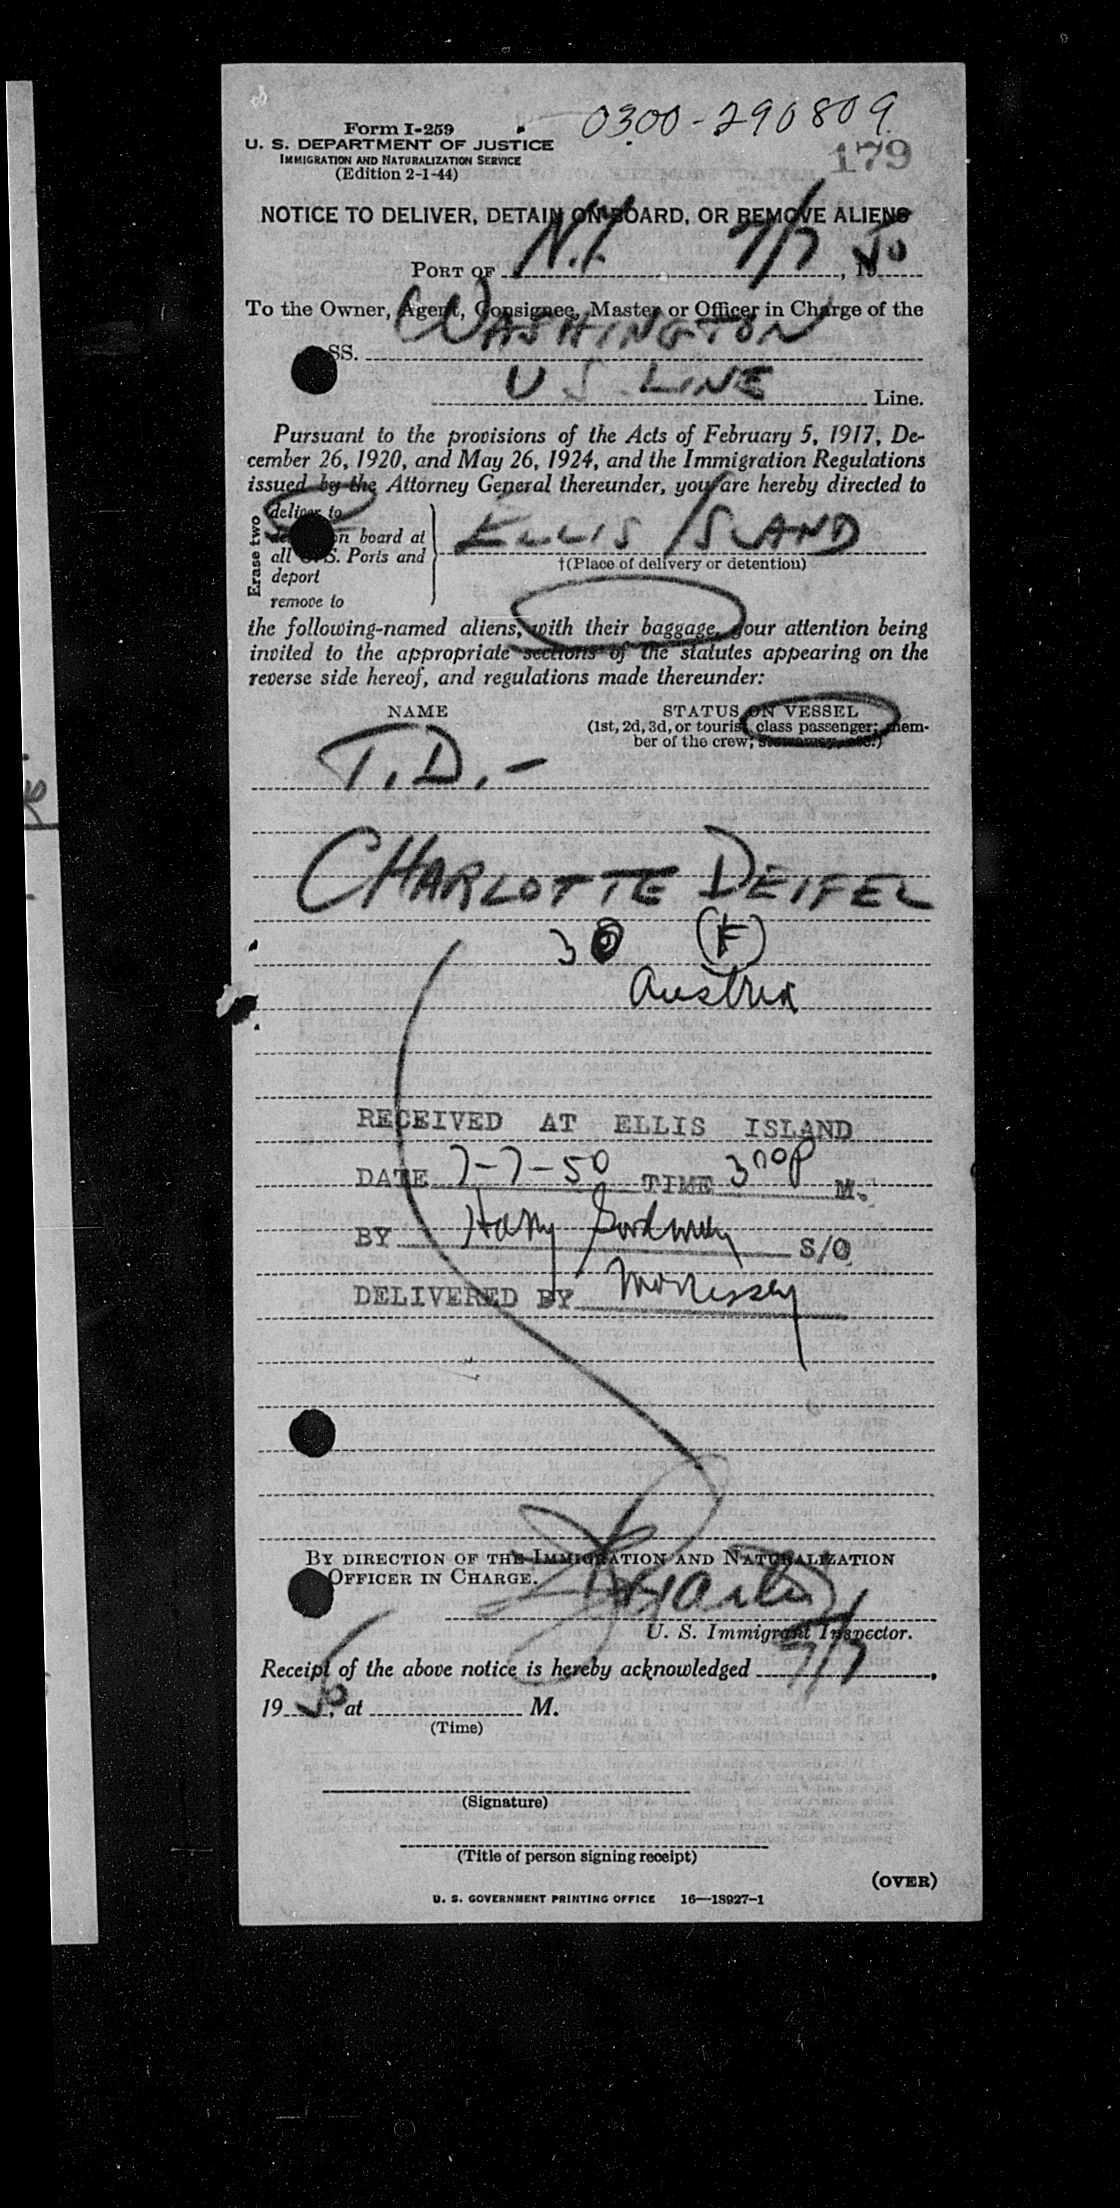 0300-290809
Form I-259
U. S. DEPARTMENT OF JUSTICE
IMMIGRATION AND NATURALIZATION SERVICE
(Edition 2-1-44)
179
NOTICE TO DELIVER, DETAIN ON BOARD, OR REMOVE ALIENS
PORT OF N.Y. 7/7, 1950
To the Owner, Agent, Consignee, Master or Officer in Charge of the
SS. WASHINGTON
U S LINE Line.
Pursuant to the provisions of the Acts of February 5, 1917, De-
cember 26, 1920, and May 26, 1924, and the Immigration Regulations
issued by the Attorney General thereunder, you are hereby directed to
Erase two
deliver to
on board at
all U. S. Ports and
deport
remove to
ELLIS ISLAND
†(Place of delivery or detention)
the following-named aliens, with their baggage, your attention being
invited to the appropriate sections of the statutes appearing on the
reverse side hereof, and regulations made thereunder:
NAME STATUS ON VESSEL
(1st, 2d, 3d, or tourist class passenger; mem-
ber of the crew; stowaway, etc.)
T.D. -
CHARLOTTE DEIFEL
(F)
Austria
RECEIVED AT ELLIS ISLAND
DATE 7-7-50 TIME 3 00 P M.
BY Harry S/O
DELIVERED BY Morrissey
BY DIRECTION OF THE IMMIGRATION AND NATURALIZATION
OFFICER IN CHARGE.
U. S. Immigrant Inspector.
Receipt of the above notice is hereby acknowledged 7/7,
1950, at M.
(Time)
(Signature)
(Title of person signing receipt)
(OVER)
U. S. GOVERNMENT PRINTING OFFICE 16—18927-1